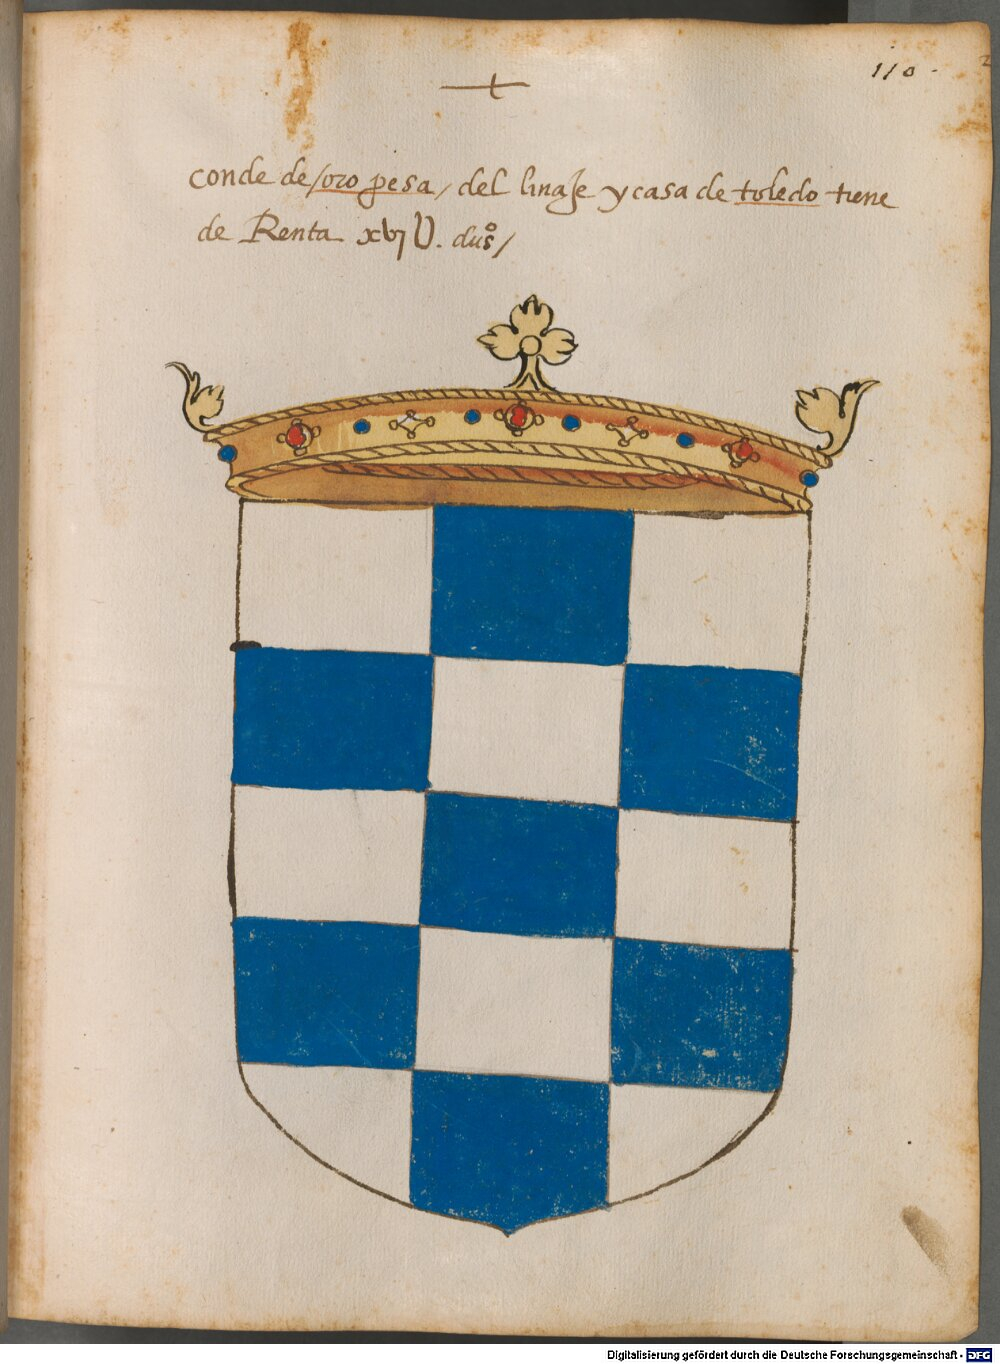 110
conde de / oro pesa / del linaje y casa de toledo tiene
de Renta xvj U. duºs /
Digitalisierung gefördert durch die Deutsche Forschungsgemeinschaft - DFG